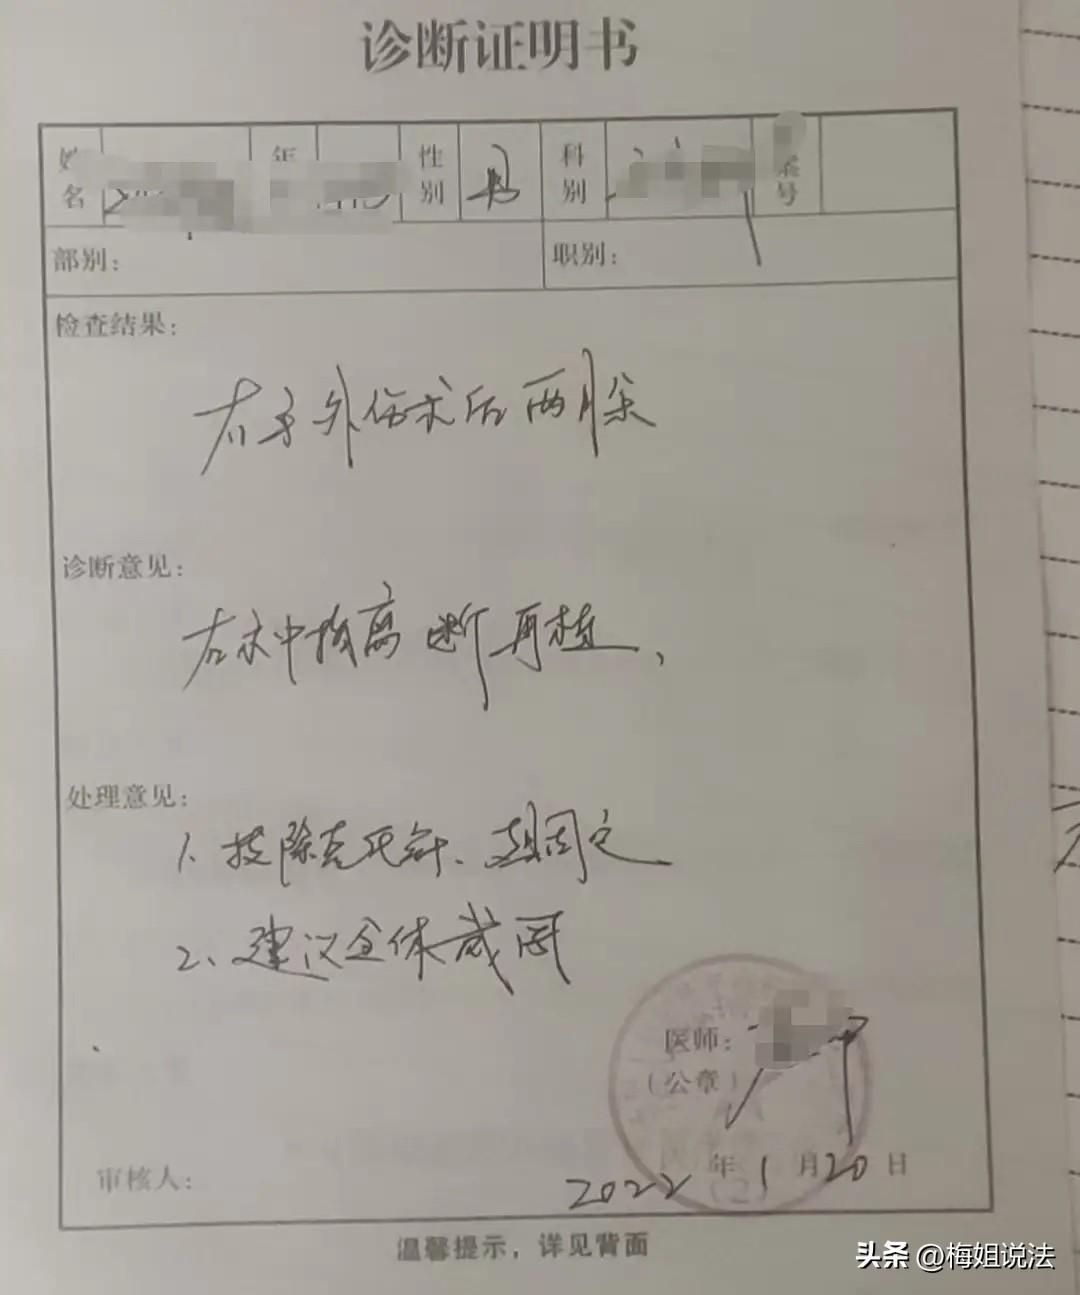 诊断证明书
姓名 年 性别 男 科别 号
部别: 职别:
检查结果:
右手外伤术后两月余
诊断意见:
右示中指离断再植、
处理意见:
1、拔除克氏针、
2、建议全休贰周
医师:
(公章)
审核人: 2022年1月20日
温馨提示，详见背面
头条 @梅姐说法